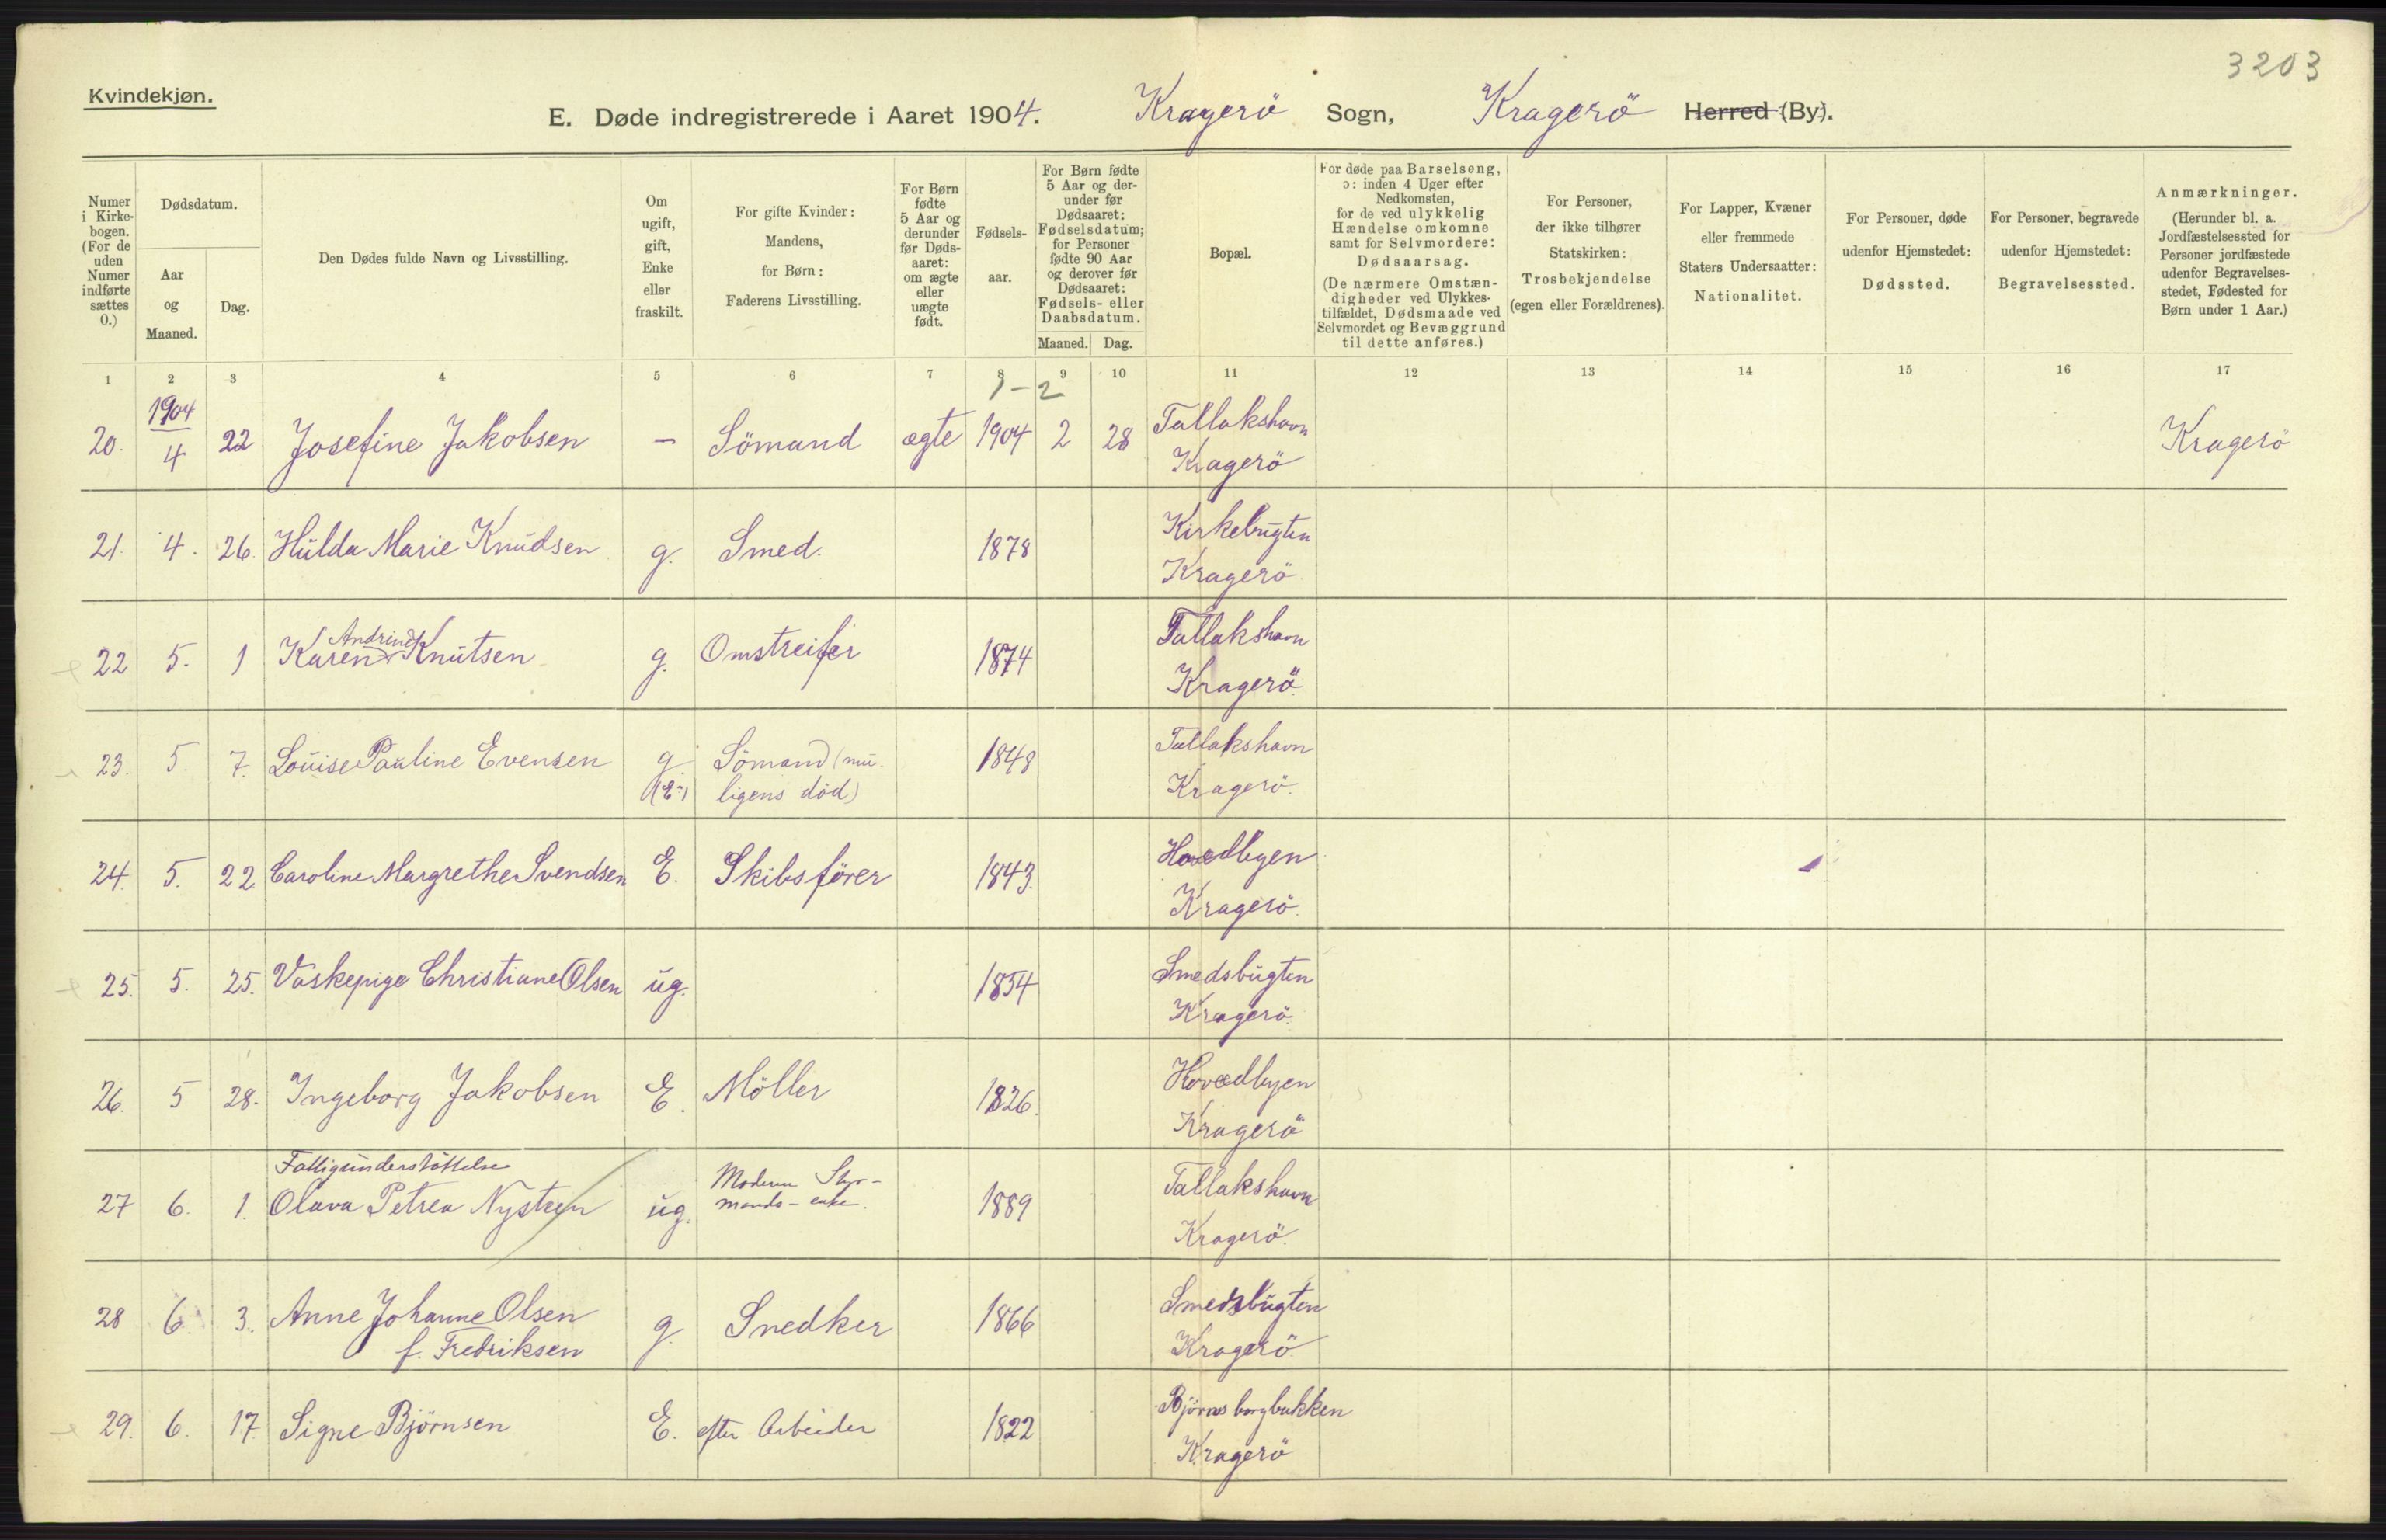 3203
Kvindekjøn.
E. Døde indregistrerede i Aaret 1904. Kragerö Sogn, Kragerö Herred (By).
Numer i Kirkebogen. (For de uden Numer indførte sættes 0.)
Dødsdatum.
Aar og Maaned.
Dag.
Den Dødes fulde Navn og Livsstilling.
Om ugift, gift, Enke eller fraskilt.
For gifte Kvinder: Mandens, for Børn: Faderens Livsstilling.
For Børn fødte 5 Aar og derunder før Dødsaaret: om ægte eller uægte født.
Fødselsaar.
For Børn fødte 5 Aar og derunder før Dødsaaret: Fødselsdatum; for Personer fødte 90 Aar og derover før Dødsaaret: Fødsels- eller Daabsdatum.
Maaned. Dag.
Bopæl.
For døde paa Barselseng, ɔ: inden 4 Uger efter Nedkomsten, for de ved ulykkelig Hændelse omkomne samt for Selvmordere: Dødsaarsag. (De nærmere Omstændigheder ved Ulykkestilfældet, Dødsmaade ved Selvmordet og Bevæggrund til dette anføres.)
For Personer, der ikke tilhører Statskirken: Trosbekjendelse (egen eller Forældrenes).
For Lapper, Kvæner eller fremmede Staters Undersaatter: Nationalitet.
For Personer, døde udenfor Hjemstedet: Dødssted.
For Personer, begravede udenfor Hjemstedet: Begravelsessted.
Anmærkninger. (Herunder bl. a. Jordfæstelsessted for Personer jordfæstede udenfor Begravelsesstedet, Fødested for Børn under 1 Aar.)
1 2 3 4 5 6 7 8 9 10 11 12 13 14 15 16 17
1-2
1904
20. 4 22 Josefine Jakobsen – Sömand ægte 1904 2 28 Tallakshavn Kagerö Kragerö
21. 4. 26. Hulda Marie Knudsen g. Smed. 1878 Kirkebugten Kragerö
22 5. 1 Karen Andrine Knutsen g. Omstreifer 1874 Tallakshavn Kragerö.
23. 5. 7. Louise Pauline Evensen g (E-) Sömand (muligens död) 1848 Tallakshavn Kragerö.
24. 5. 22 Caroline Margrethe Svendsen E. Skibsförer 1843. Hovedbyen Kragerö.
25. 5. 25. Vaskepige Christiane Olsen ug. 1854 Smedsbugten Kragerö.
26. 5 28. Ingeborg Jakobsen E. Möller 1826. Hovedbyen Kragerö
Fattigunderstöttelse
27 6. 1. Olava Petrea Nysteen ug. Moderen Styrmands-enke. 1889 Tallakshavn Kragerö.
28 6 3. Anne Johanne Olsen f. Fredriksen g. Snedker 1866 Smedsbugten Kragerö
29. 6. 17. Signe Björnsen E. efter Arbeider 1822 Björnsborgbakken Kragerö